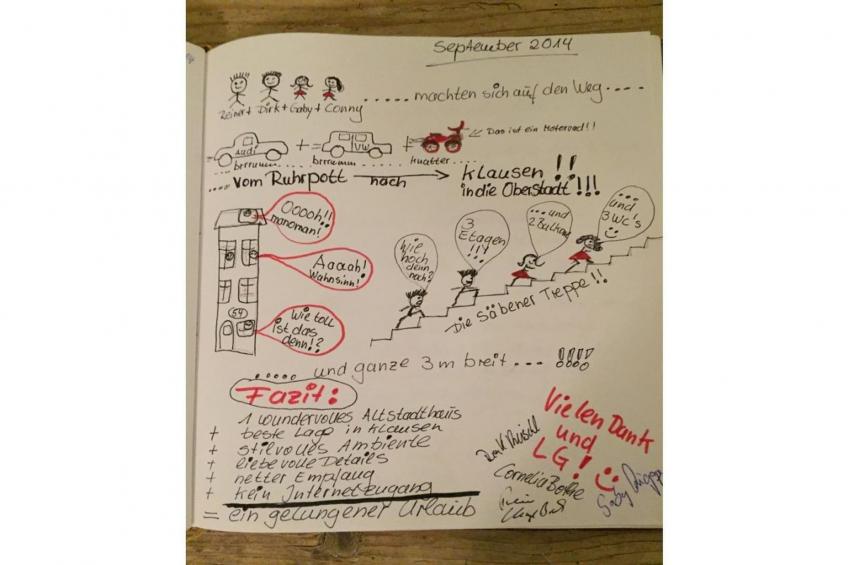 September 2014
Reiner + Dirk + Gaby + Conny
..... machten sich auf den Weg ....
Audi + VW +
Das ist ein Motorrad!!
brrrumm ... brrrumm ... knatter ....
.... vom Ruhrpott nach Klausen!!
in die Oberstadt!!!
Ooooh!!
manoman!
Aaaah!
Wahnsinn!
54
Wie toll
ist das
denn!?
Wie
hoch
denn
noch?
3
Etagen
!!!
...und
2 Balkone
...und
3 WC's
Die Säbener Treppe!!
..... und ganze 3m breit ... !!!!
Fazit:
1 wundervolles Altstadthaus
+ beste Lage in Klausen
+ stilvolles Ambiente
+ liebevolle Details
+ netter Empfang
+ kein Internetzugang
= ein gelungener Urlaub
Vielen Dank
und
LG!
Cornelia
Gaby